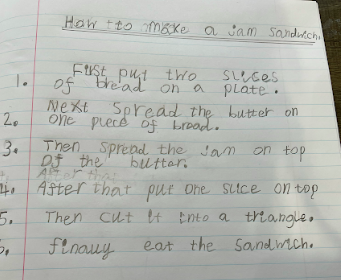 How to make a jam sandwich.
1. First put two slices
of bread on a plate.
2. Next spread the butter on
one piece of bread.
3. Then spread the jam on top
of the butter.
4. After that put one slice on top
5. Then cut it into a triangle.
6. finally eat the sandwich.